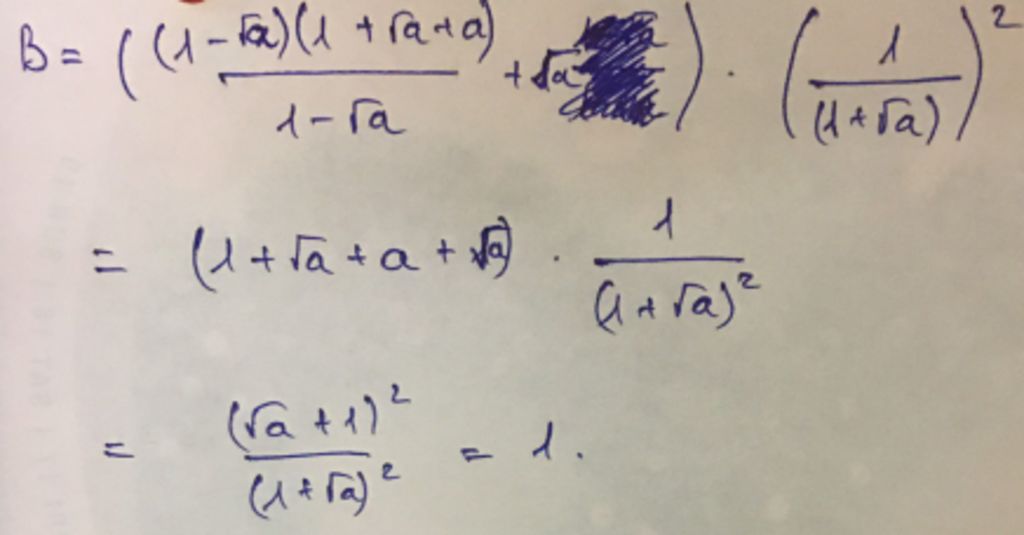 B = ( (1 - √a)(1 + √a + a) / 1 - √a + √a ) . ( 1 / (1 + √a) )²
= (1 + √a + a + √a) . 1 / (1 + √a)²
= (√a + 1)² / (1 + √a)² = 1.